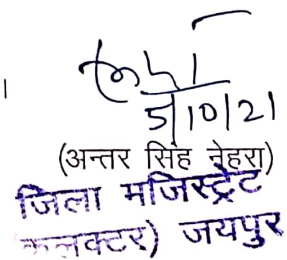 5/10/21
(अन्तर सिंह नेहरा)
जिला मजिस्ट्रेट
कलक्टर) जयपुर